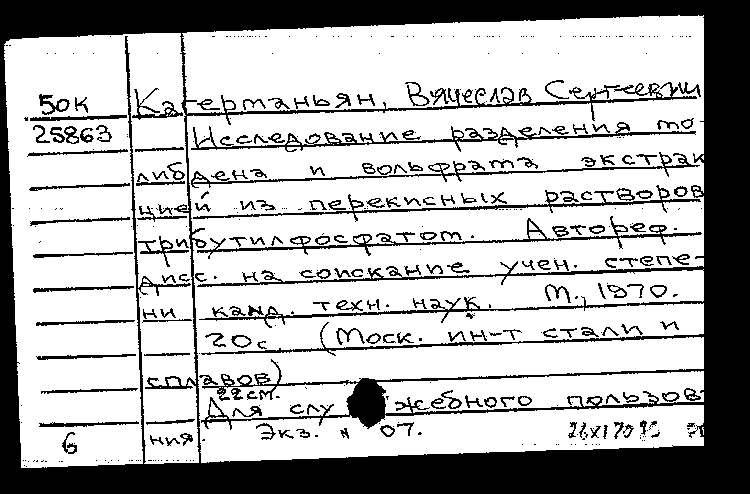 50к Кагерманьян, Вячеслав Сергеевич
25863 Исследование разделения мо-
либдена и вольфрама экстрак
цией из перекисных растворов
трибутилфосфатом. Автореф.
дисс. на соискание учен. степе-
ни канд. техн. наук. М., 1970.
20с (Моск. ин-т стали и
сплавов)
22см.
Для служебного пользов
6 ния. Экз. N 07.